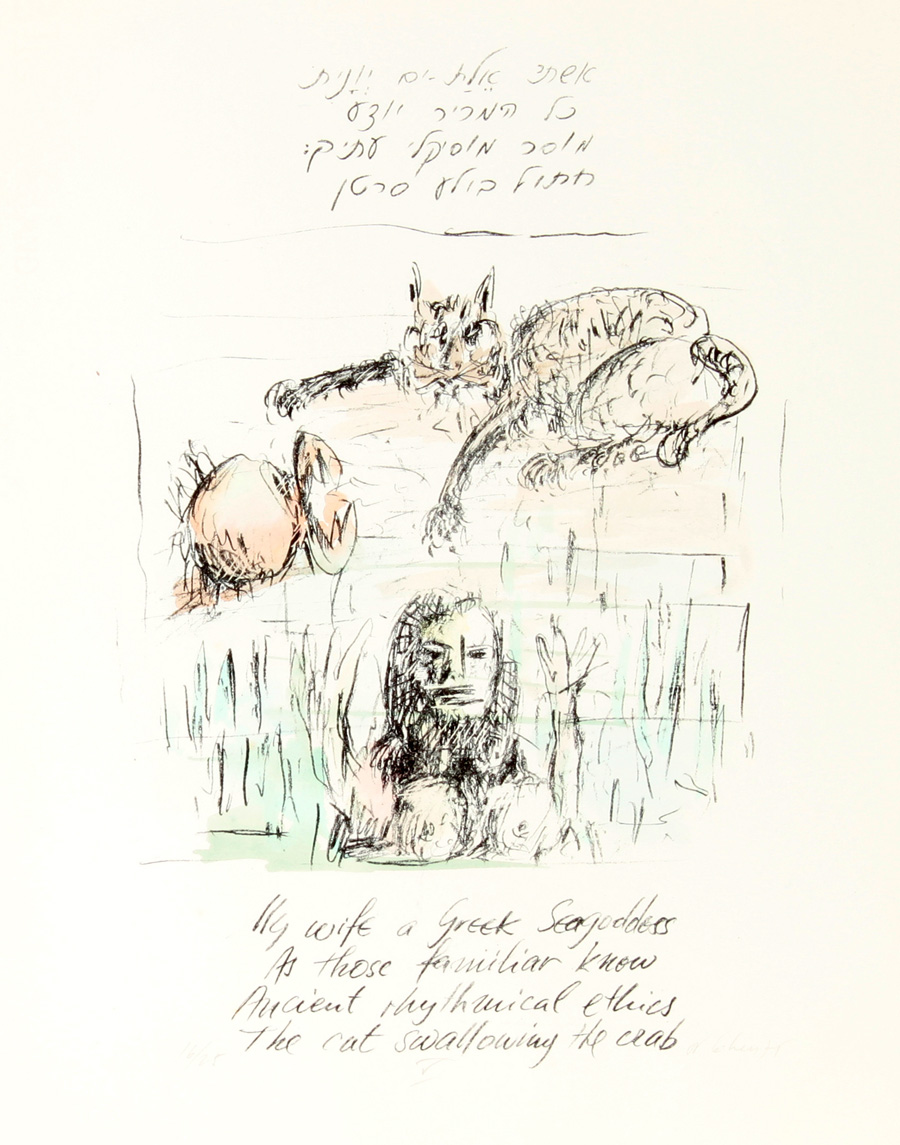 אשתי אֵלַת-ים יְוָנִית
כל המכיר יודע
מוסר מוסיקלי עתיק:
חתול בולע סרטן
My wife a Greek Seagoddess
As those familiar know
Ancient rhythmical ethics
The cat swallowing the crab